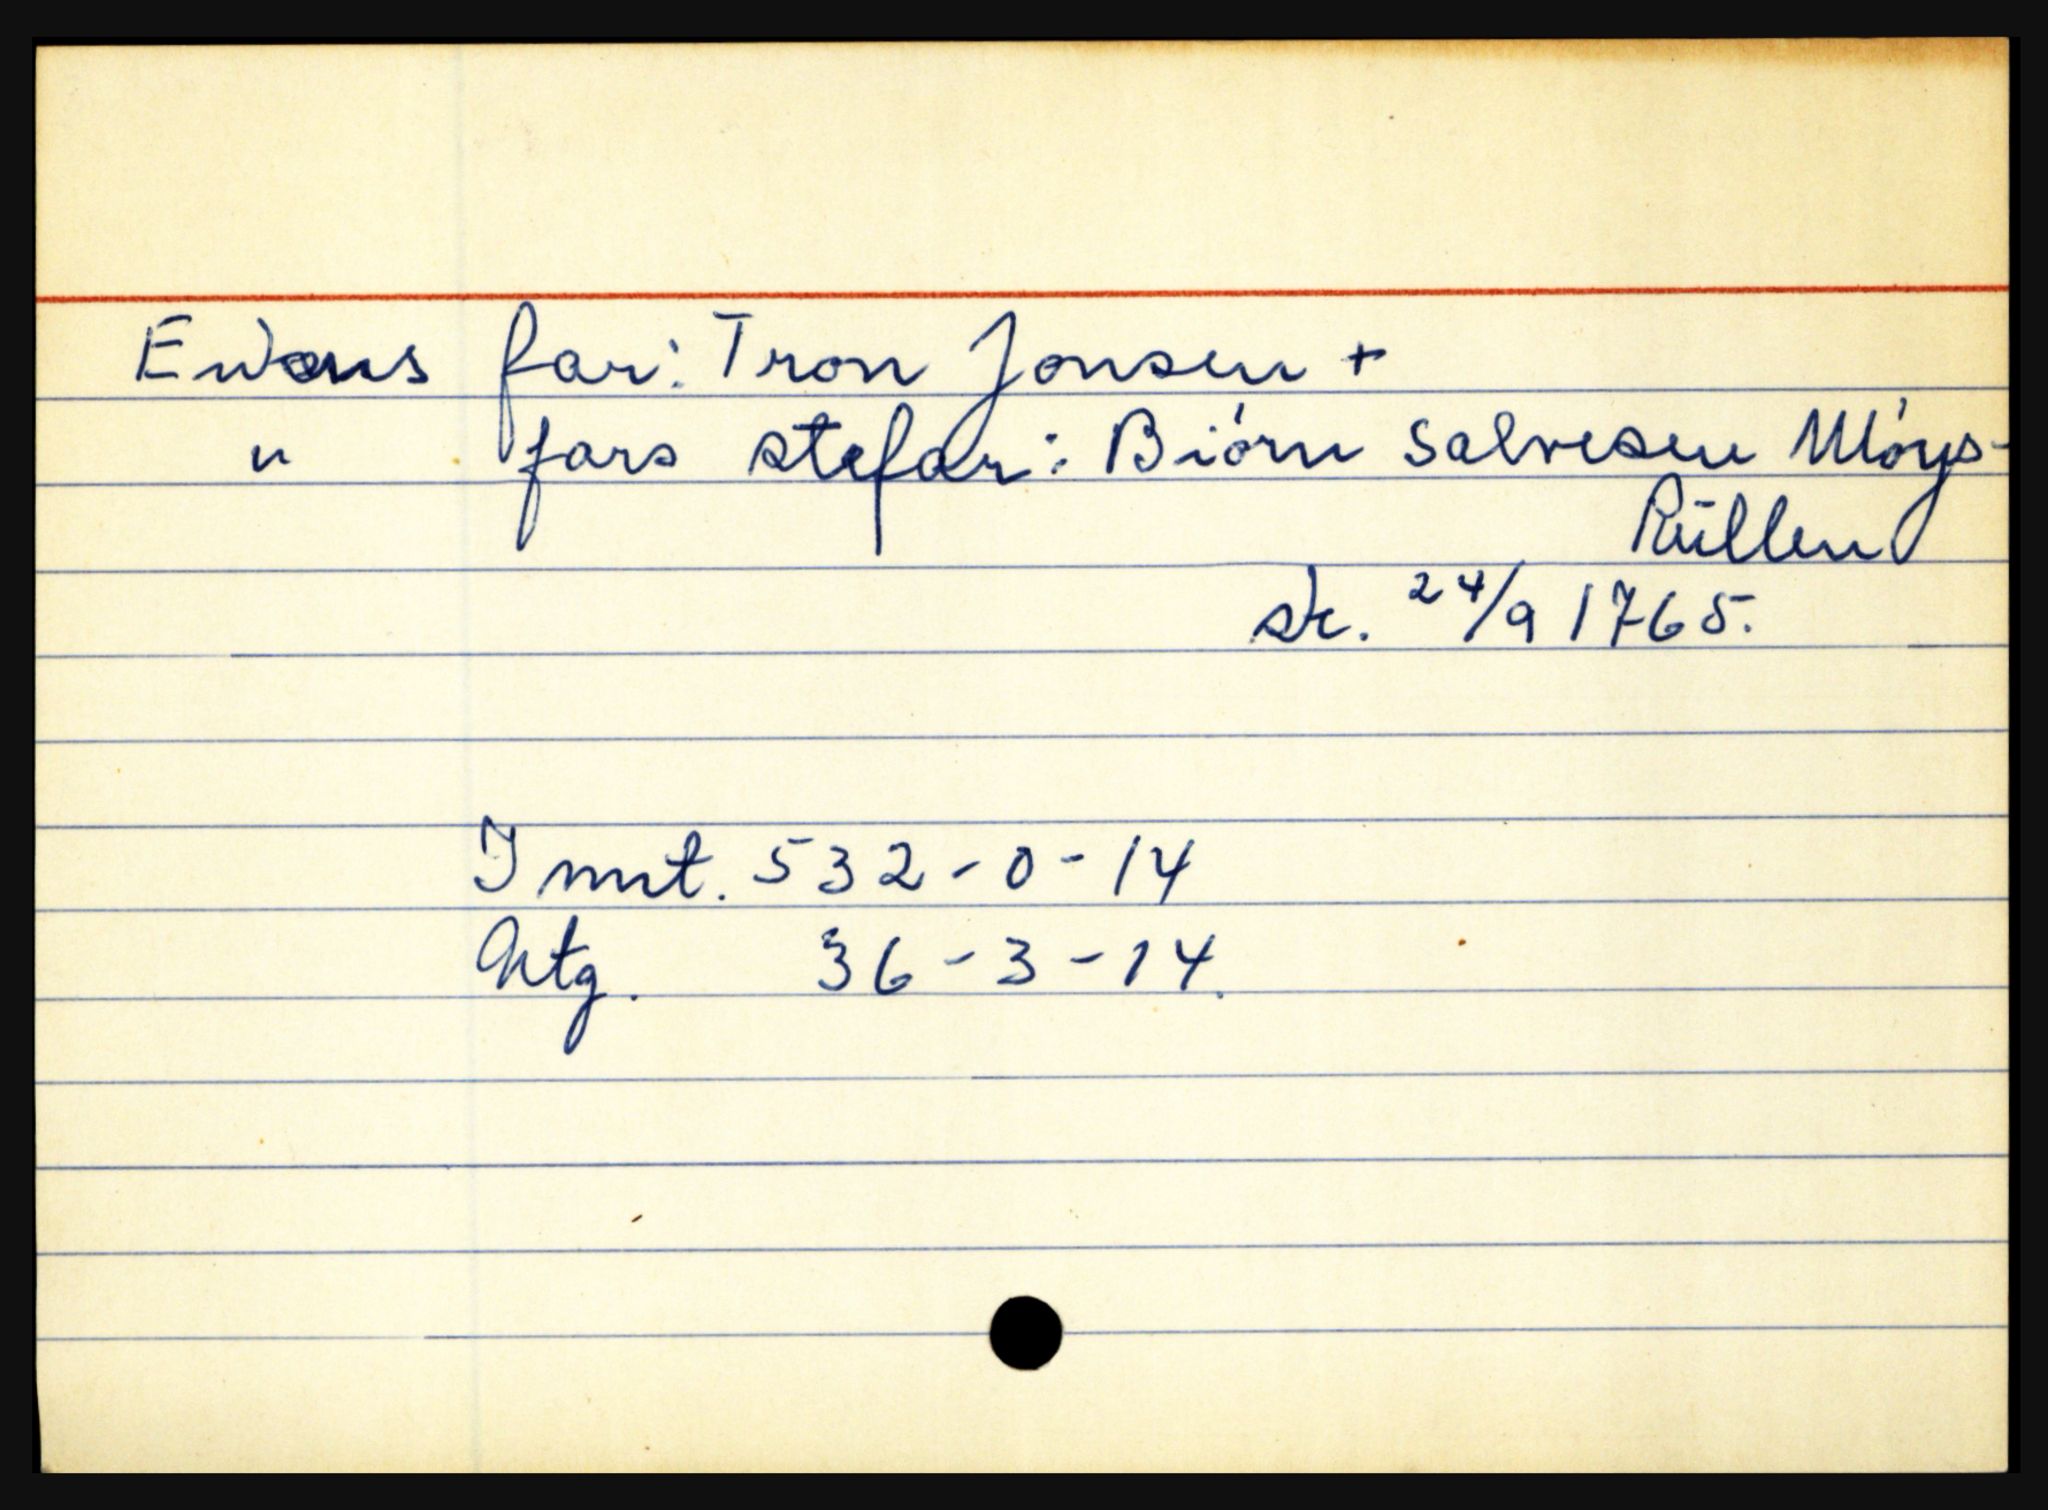 Enkens far: Tron Jonsen +
" fars stefar: Biörn Salvesen Möys-
Rüllen
sk. 24/9 1765.
Innt. 532-0-14
Utg. 36-3-14.